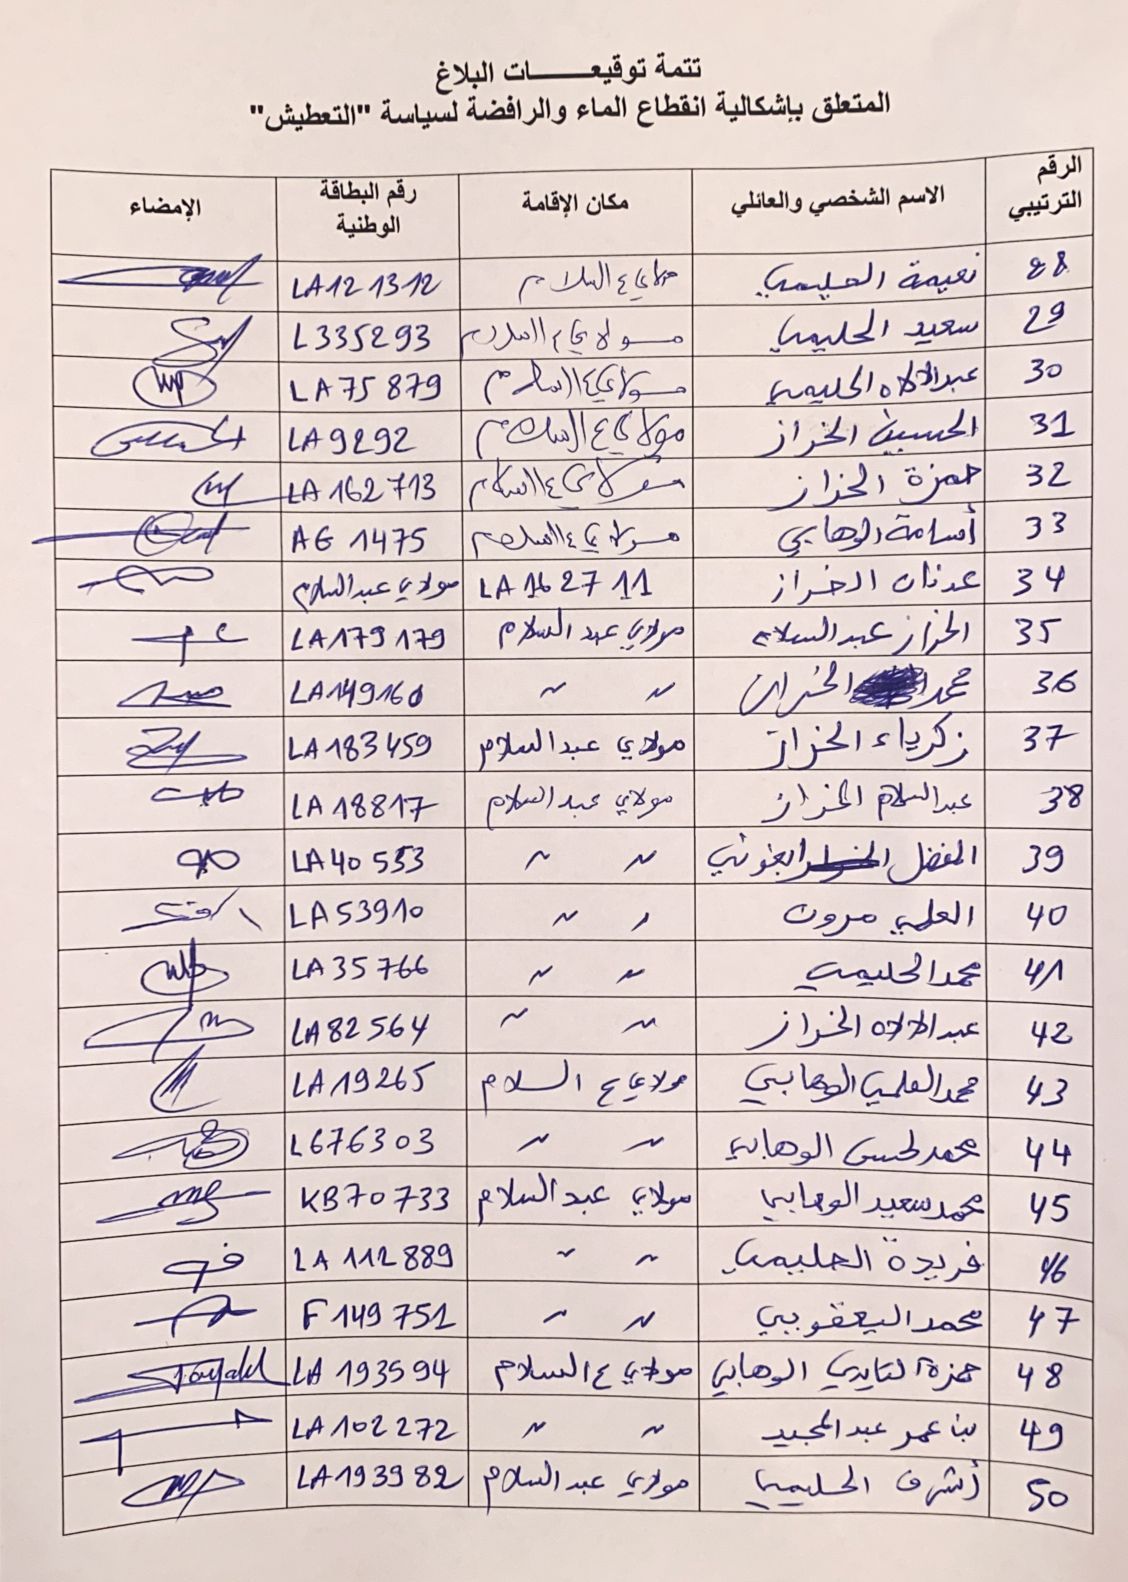 تتمة توقيعـــــات البلاغ
المتعلق بإشكالية انقطاع الماء والرافضة لسياسة "التعطيش"
الرقم الترتيبي الاسم الشخصي والعائلي مكان الإقامة رقم البطاقة الوطنية الإمضاء
28 نعيمة الحليمي مولاي ع السلام LA121312
29 سعيد الحليمي مولاي ع السلام L335293
30 عبدالالاه الحليمي مولاي ع السلام LA75879
31 الحسين الخراز مولاي ع السلام LA9292
32 حمزة الخراز مولاي ع السلام LA162713
33 أسامة الوهابي مولاي ع السلام AG1475
34 عدنان الخراز LA162711 مولاي عبد السلام
35 الخراز عبد السلام مولاي عبد السلام LA179179
36 محمد الخراز " " LA149160
37 زكرياء الخراز مولاي عبد السلام LA183459
38 عبد السلام الخراز مولاي عبد السلام LA18817
39 المفضل " " LA40553
40 العلمي مرون " " LA53910
41 محمد الحليمي " " LA35766
42 عبدالالاه الخراز " " LA82564
43 محمد العلمي الوهابي مولاي ع السلام LA19265
44 محمد لحسن الوهابي " " L676303
45 محمد سعيد الوهابي مولاي عبد السلام KB70733
46 فريدة الحليمي " " LA112889
47 محمد اليعقوبي " " F149751
48 حمزة الوهابي مولاي ع السلام LA193594
49 بنعمر عبد المجيد " " LA102272
50 أشرف الحليمي مولاي عبد السلام LA193982